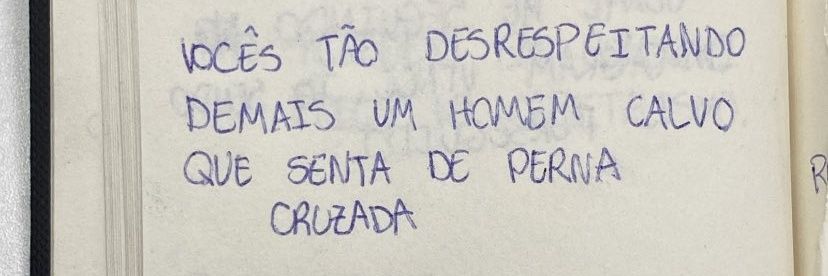 VOCÊS TÃO DESRESPEITANDO
DEMAIS UM HOMEM CALVO
QUE SENTA DE PERNA
CRUZADA